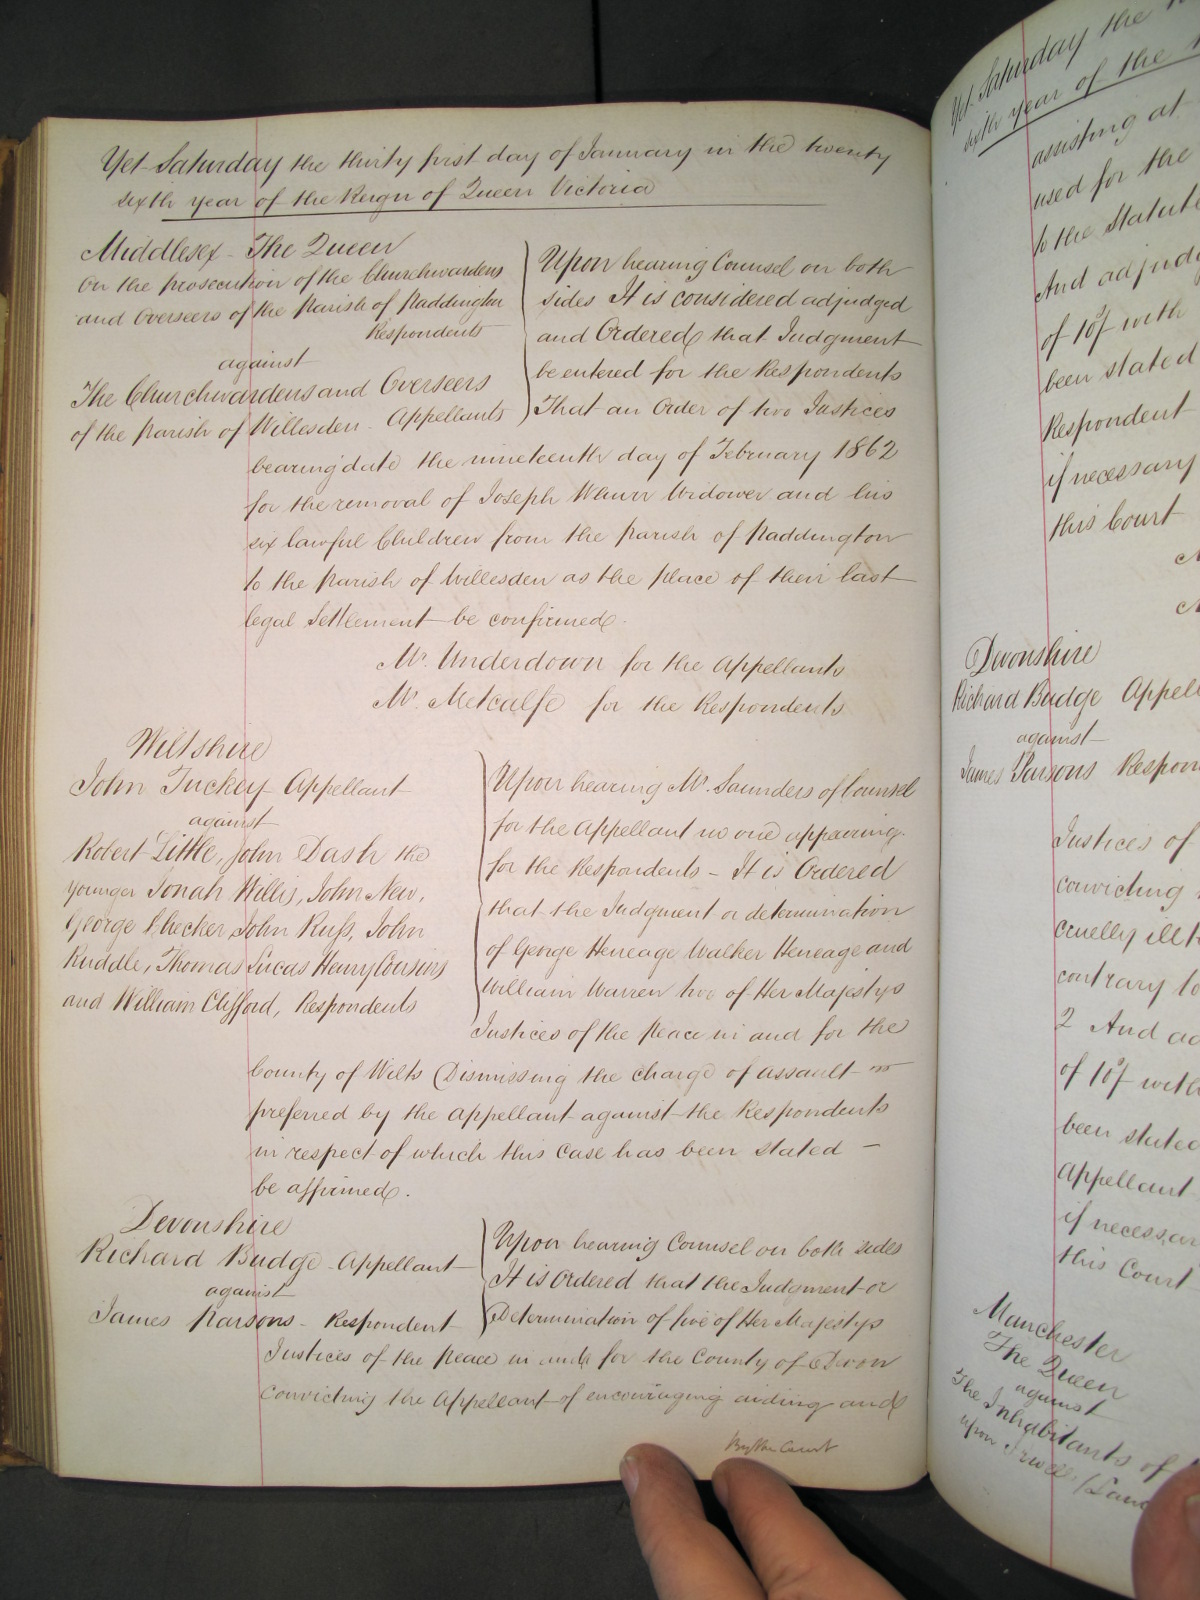 Yet Saturday the thirty first day of January in the twenty
sixth year of the Reign of Queen Victoria
Middlesex - The Queen
on the prosecution of the Churchwardens
and Overseers of the Parish of Paddington
Respondents
against
The Churchwardens and Overseers
of the Parish of Willesden - Appellants
Upon hearing Counsel on both
sides It is considered adjudged
and Ordered that Judgment
be entered for the Respondents
That an Order of two Justices
bearing date the nineteenth day of February 1862
for the removal of Joseph Widower and his
six lawful Children from the Parish of Paddington
to the Parish of Willesden as the place of their last
legal Settlement be confirmed.
Mr. Underdown for the Appellants
Mr. Metcalfe for the Respondents
Wiltshire
John Tuckey Appellant
against
Robert Little, John Dash the
younger Jonah Willis, John New,
George John Russ, John
Ruddle, Thomas Lucas Henry Cousins
and William Clifford, Respondents
Upon hearing Mr. Saunders of Counsel
for the Appellant no one appearing
for the Respondents - It is Ordered
that the Judgment or determination
of George Heneage Walker Heneage and
William Warren two of Her Majestys
Justices of the Peace in and for the
County of Wilts Dismissing the charge of assault
preferred by the Appellant against the Respondents
in respect of which this Case has been stated -
be affirmed.
Devonshire
Richard Budge - Appellant
against
James Parsons - Respondent
Upon hearing Counsel on both sides
It is Ordered that the Judgment or
Determination of five of Her Majestys
Justices of the Peace in and for the County of Devon
convicting the Appellant of encouraging aiding and
By the Court
Yet Saturday the
sixth year of the
assisting at
used for the
to the Statute
And adjudg
of 10/ with
been stated
Respondent
if necessary
this Court
Devonshire
Richard Budge Appell
against
James Parsons Respon
Justices of
convicting
cruelly ill
contrary to
2 And ad
of 10/ with
been stated
Appellant
if necessar
this Court
Manchester
The Queen
against
The Inhabitants of
upon Irwell